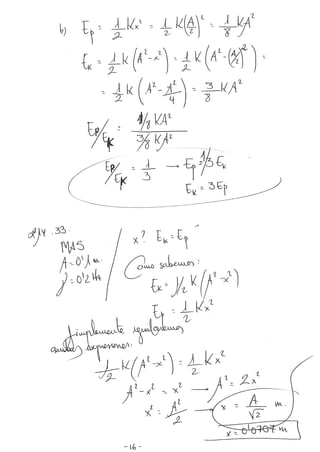 b) Ep = 1/2 Kx² = 1/2 K(A/2)² = 1/8 KA²
Ek = 1/2 K (A² - x²) = 1/2 K (A² - (A/2)²) =
= 1/2 K (A² - A²/4) = 3/8 KA²
Ep/Ek = 1/8 KA² / 3/8 KA²
Ep/Ek = 1/3 → Ep = 1/3 Ek
Ek = 3Ep
33.
MAS
A = 0'1 m
f = 0'2 Hz
x? Ek = Ep
Como sabemos:
Ek = 1/2 K (A² - x²)
Ep = 1/2 Kx²
Simplemente igualaremos
ambas expresiones:
1/2 K (A² - x²) = 1/2 Kx²
A² - x² = x² → A² = 2x²
x² = A²/2 → x = A/√2 m.
x = 0'0707 m
-16-